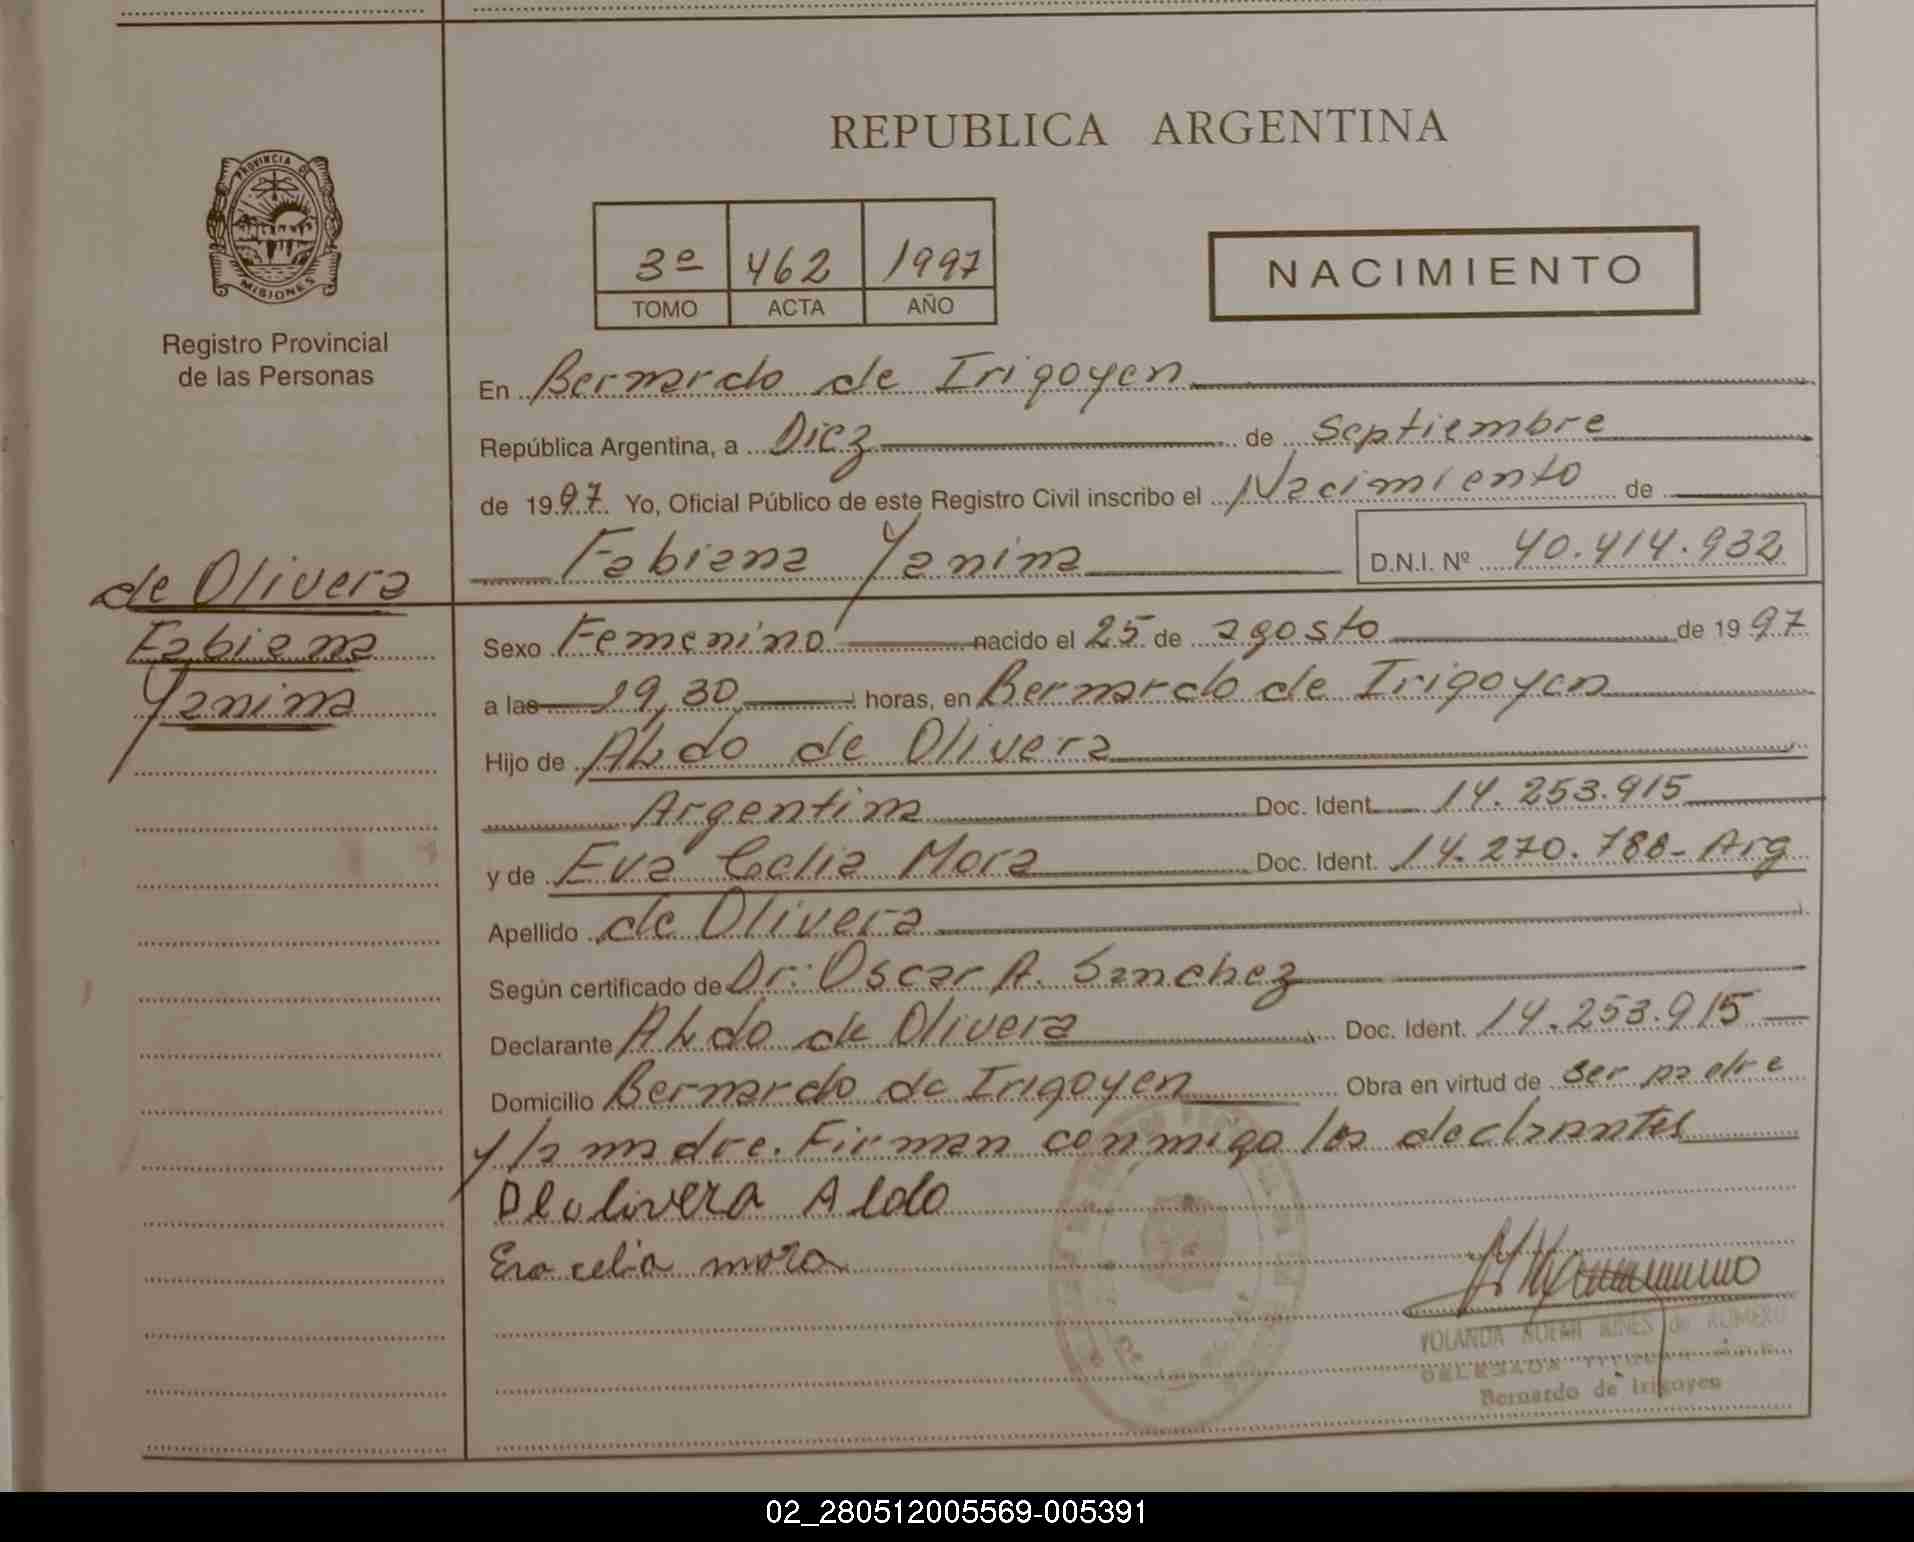 REPUBLICA ARGENTINA
PROVINCIA DE
MISIONES
Registro Provincial
de las Personas
3º 462 1997
TOMO ACTA AÑO
NACIMIENTO
En Bernardo de Irigoyen
República Argentina, a Diez de Septiembre
de 1997 Yo, Oficial Público de este Registro Civil inscribo el Nacimiento de
Fabiana Yanina D.N.I. Nº 40.414.932
de Olivera
Fabiana
Yanina
Sexo Femenino nacido el 25 de agosto de 1997
a las 19,30 horas, en Bernardo de Irigoyen
Hijo de Aldo de Olivera
Argentina Doc. Ident. 14.253.915
y de Eva Celia Mora Doc. Ident. 14.270.788- Arg
Apellido de Olivera
Según certificado de Dr: Oscar A. Sanchez
Declarante Aldo de Olivera Doc. Ident. 14.253.915
Domicilio Bernardo de Irigoyen Obra en virtud de ser padre
y la madre. Firman conmigo los declarantes
Deolivera Aldo
Eva celia mora
YOLANDA NOEMI de ROMERO
DELEGADA TITULAR
Bernardo de Irigoyen
02_280512005569-005391